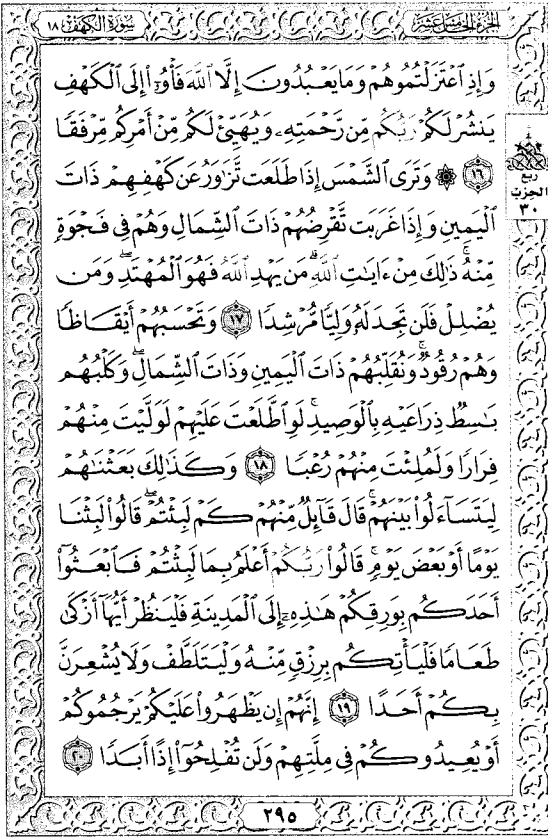 سورة الكهف ١٨
الجزء الخامس عشر
وَإِذِ ٱعۡتَزَلۡتُمُوهُمۡ وَمَا يَعۡبُدُونَ إِلَّا ٱللَّهَ فَأۡوُۥٓاْ إِلَى ٱلۡكَهۡفِ
يَنشُرۡ لَكُمۡ رَبُّكُم مِّن رَّحۡمَتِهِۦ وَيُهَيِّئۡ لَكُم مِّنۡ أَمۡرِكُم مِّرۡفَقٗا
١٦ ۞ وَتَرَى ٱلشَّمۡسَ إِذَا طَلَعَت تَّزَٰوَرُ عَن كَهۡفِهِمۡ ذَاتَ
ربع
الحزب
٣٠
ٱلۡيَمِينِ وَإِذَا غَرَبَت تَّقۡرِضُهُمۡ ذَاتَ ٱلشِّمَالِ وَهُمۡ فِي فَجۡوَةٖ
مِّنۡهُۚ ذَٰلِكَ مِنۡ ءَايَٰتِ ٱللَّهِۗ مَن يَهۡدِ ٱللَّهُ فَهُوَ ٱلۡمُهۡتَدِۖ وَمَن
يُضۡلِلۡ فَلَن تَجِدَ لَهُۥ وَلِيّٗا مُّرۡشِدٗا ١٧ وَتَحۡسَبُهُمۡ أَيۡقَاظٗا
وَهُمۡ رُقُودٞۚ وَنُقَلِّبُهُمۡ ذَاتَ ٱلۡيَمِينِ وَذَاتَ ٱلشِّمَالِۖ وَكَلۡبُهُم
بَٰسِطٞ ذِرَاعَيۡهِ بِٱلۡوَصِيدِۚ لَوِ ٱطَّلَعۡتَ عَلَيۡهِمۡ لَوَلَّيۡتَ مِنۡهُمۡ
فِرَارٗا وَلَمُلِئۡتَ مِنۡهُمۡ رُعۡبٗا ١٨ وَكَذَٰلِكَ بَعَثۡنَٰهُمۡ
لِيَتَسَآءَلُواْ بَيۡنَهُمۡۚ قَالَ قَآئِلٞ مِّنۡهُمۡ كَمۡ لَبِثۡتُمۡۖ قَالُواْ لَبِثۡنَا
يَوۡمًا أَوۡ بَعۡضَ يَوۡمٖۚ قَالُواْ رَبُّكُمۡ أَعۡلَمُ بِمَا لَبِثۡتُمۡ فَٱبۡعَثُوٓاْ
أَحَدَكُم بِوَرِقِكُمۡ هَٰذِهِۦٓ إِلَى ٱلۡمَدِينَةِ فَلۡيَنظُرۡ أَيُّهَآ أَزۡكَىٰ
طَعَامٗا فَلۡيَأۡتِكُم بِرِزۡقٖ مِّنۡهُ وَلۡيَتَلَطَّفۡ وَلَا يُشۡعِرَنَّ
بِكُمۡ أَحَدًا ١٩ إِنَّهُمۡ إِن يَظۡهَرُواْ عَلَيۡكُمۡ يَرۡجُمُوكُمۡ
أَوۡ يُعِيدُوكُمۡ فِي مِلَّتِهِمۡ وَلَن تُفۡلِحُوٓاْ إِذًا أَبَدٗا ٢٠
٢٩٥